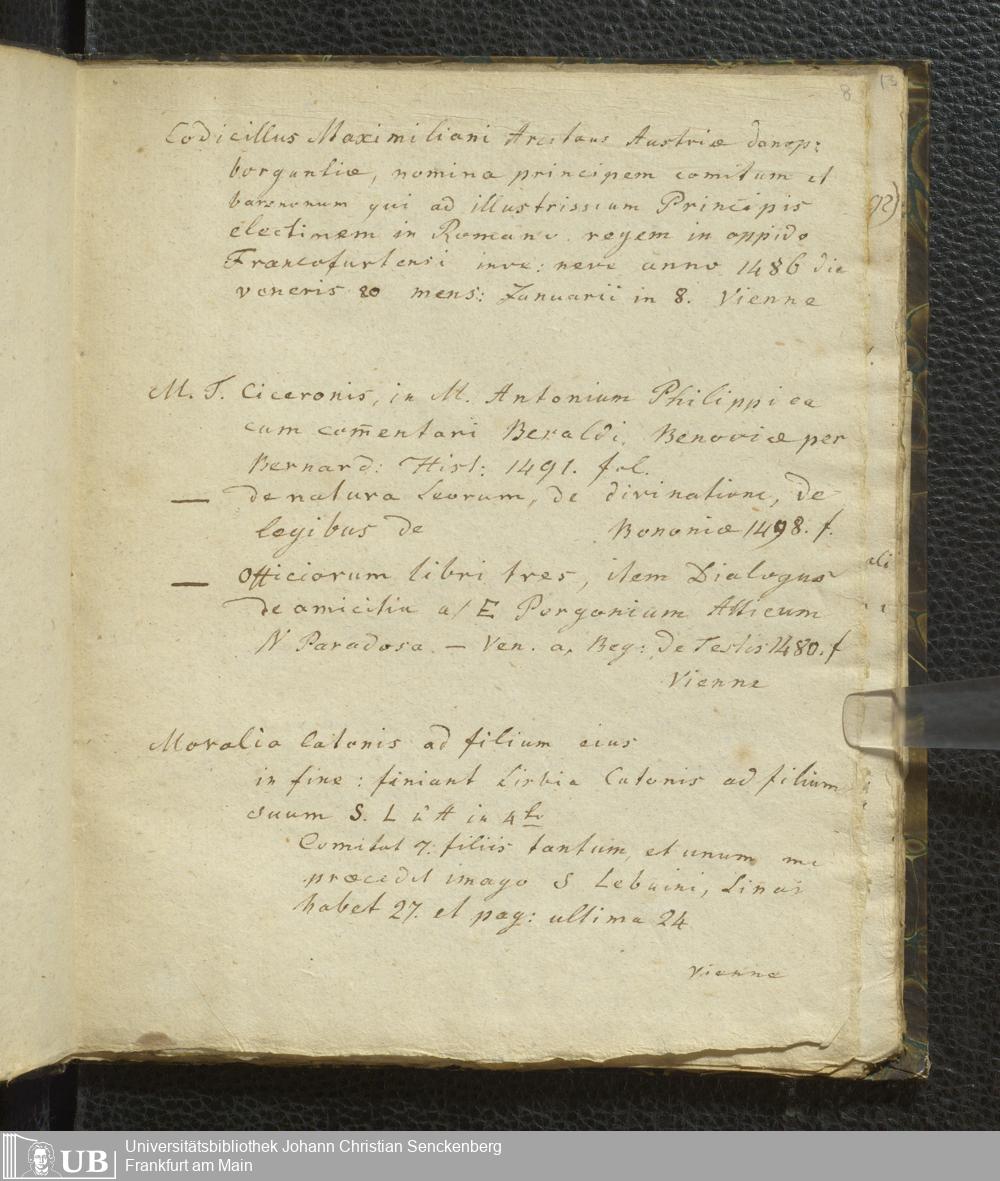 8 13
Codicillus Maximiliani Arcitaus Austriæ donop:
borguntiæ, nomina principem comitum et
baronnum qui ad illustrissium Principis
electinem in Romanv. regem in oppido
Francofurtensi inve: neve anno 1486 die
veneris 20 mens: Januarii in 8. Vienne
92)
M. T. Ciceronis, in M. Antonium Philippi ea
cum com̄entari Beraldi. Benoviæ per
Bernard: Hist: 1491. fol.
— de natura Leorum, de divinatione, De
legibus de Bononiæ 1498. f.
— Officiorum libri tres, item Dialogus
de amicitia a/ E Porgonium Atticum
N Paradosa. — Ven. a. Beg: De Testis 1480. f
Vienne
Moralia Catonis ad filium eius
in fine: finiant Lirbia Catonis ad filium
suum S. L ù A in 4to
Comitat 7. filiis tantum, et unum
præcedit imago S Lebuini, Linas
habet 27. et pag: ultima 24
Vienne
UB
Universitätsbibliothek Johann Christian Senckenberg
Frankfurt am Main